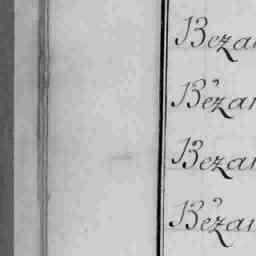 Bezan
Bezan
Bezan
Bezan